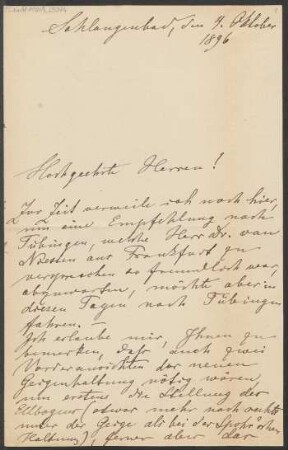 Schlangenbad, den 4. Oktober
1896
Hochgeehrte Herren!
Zur Zeit verweile ich noch hier,
um eine Empfehlung nach
Tübingen, welche Herr Dr. van
aus Frankfurt zu
versprechen so freundlich war,
abzuwarten, möchte aber in
diesen Tagen nach Tübingen
fahren. —
Ich erlaube mir, Ihnen zu
bemerken, daß auch zwei
Vorderansichten der neuen
Geigenhaltung nötig wären,
um erstens die Stellung des
Ellbogens (etwas mehr nach rechts
unter der Geige als bei der Spohr'schen
Haltung), ferner aber das